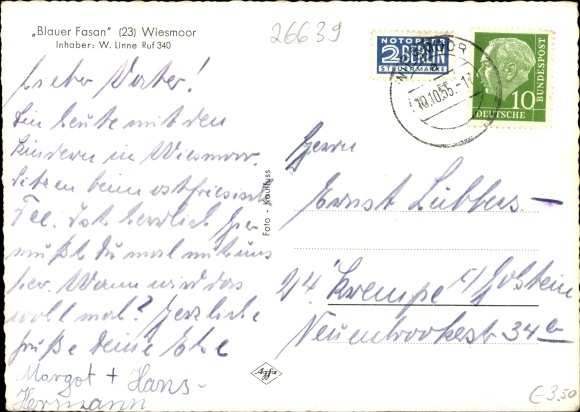 „Blauer Fasan" (23) Wiesmoor
Inhaber: W. Linne Ruf 340
26639
NOTOPFER
2 BERLIN
STEUERMARKE
WIESMOOR
10.10.55.-1
10
DEUTSCHE
BUNDESPOST
Lieber Vater!
Bin heute mit den
Kindern in Wiesmoor.
Sitzen beim ostfriesisch
Tee. Ist herrlich hier
mußt du mal mit uns
her. Wann wird das
wohl mal? Herzliche
Grüße Deine
Margot + Hans-
Hermann
Foto -
Herrn
Ernst Lübbers
Krempe Holstein
34
Agfa
€ 3,50